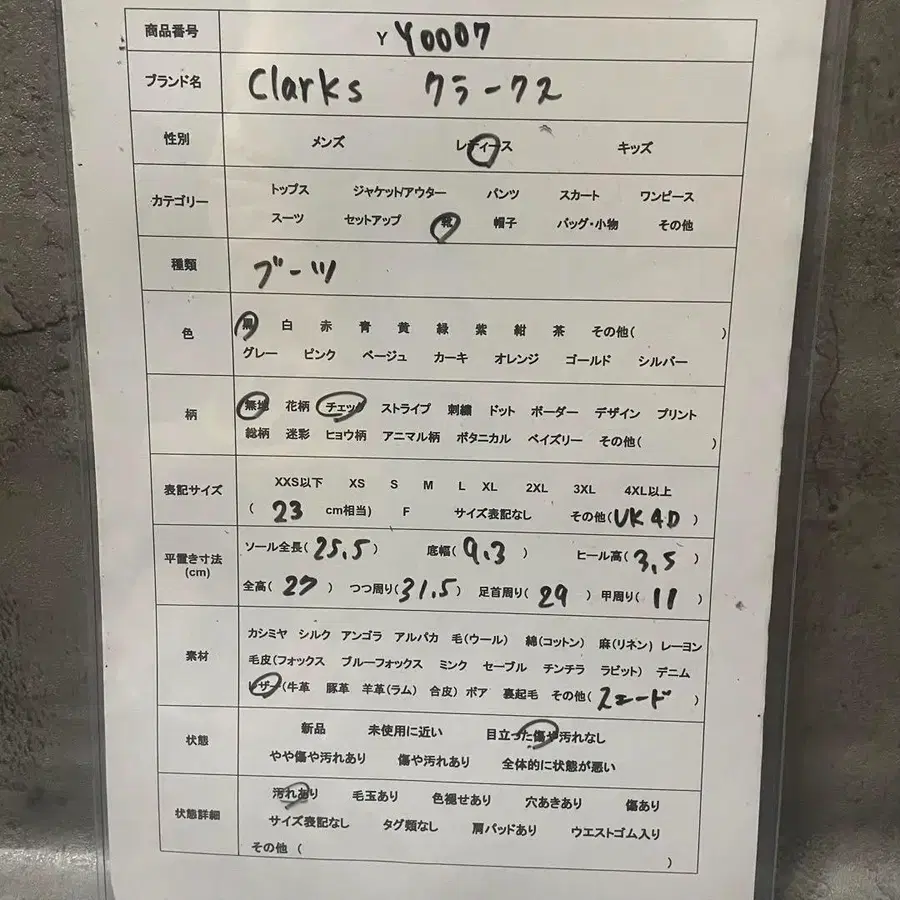 商品番号 Y Y0007
ブランド名 Clarks クラークス
性別 メンズ レディース キッズ
カテゴリー トップス ジャケット/アウター パンツ スカート ワンピース
スーツ セットアップ 靴 帽子 バッグ・小物 その他
種類 ブーツ
色 黒 白 赤 青 黄 緑 紫 紺 茶 その他( )
グレー ピンク ベージュ カーキ オレンジ ゴールド シルバー
柄 無地 花柄 チェック ストライプ 刺繍 ドット ボーダー デザイン プリント
総柄 迷彩 ヒョウ柄 アニマル柄 ボタニカル ペイズリー その他( )
表記サイズ XXS以下 XS S M L XL 2XL 3XL 4XL以上
( 23 cm相当) F サイズ表記なし その他(UK 4D )
平置き寸法 (cm) ソール全長( 25.5 ) 底幅( 9.3 ) ヒール高( 3.5 )
全高( 27 ) つつ周り( 31.5 ) 足首周り( 29 ) 甲周り( 11 )
素材 カシミヤ シルク アンゴラ アルパカ 毛(ウール) 綿(コットン) 麻(リネン) レーヨン
毛皮(フォックス ブルーフォックス ミンク セーブル チンチラ ラビット) デニム
レザー(牛革 豚革 羊革(ラム) 合皮) ボア 裏起毛 その他( スエード )
状態 新品 未使用に近い 目立った傷や汚れなし
やや傷や汚れあり 傷や汚れあり 全体的に状態が悪い
状態詳細 汚れあり 毛玉あり 色褪せあり 穴あきあり 傷あり
サイズ表記なし タグ類なし 肩パッドあり ウエストゴム入り
その他 ( )